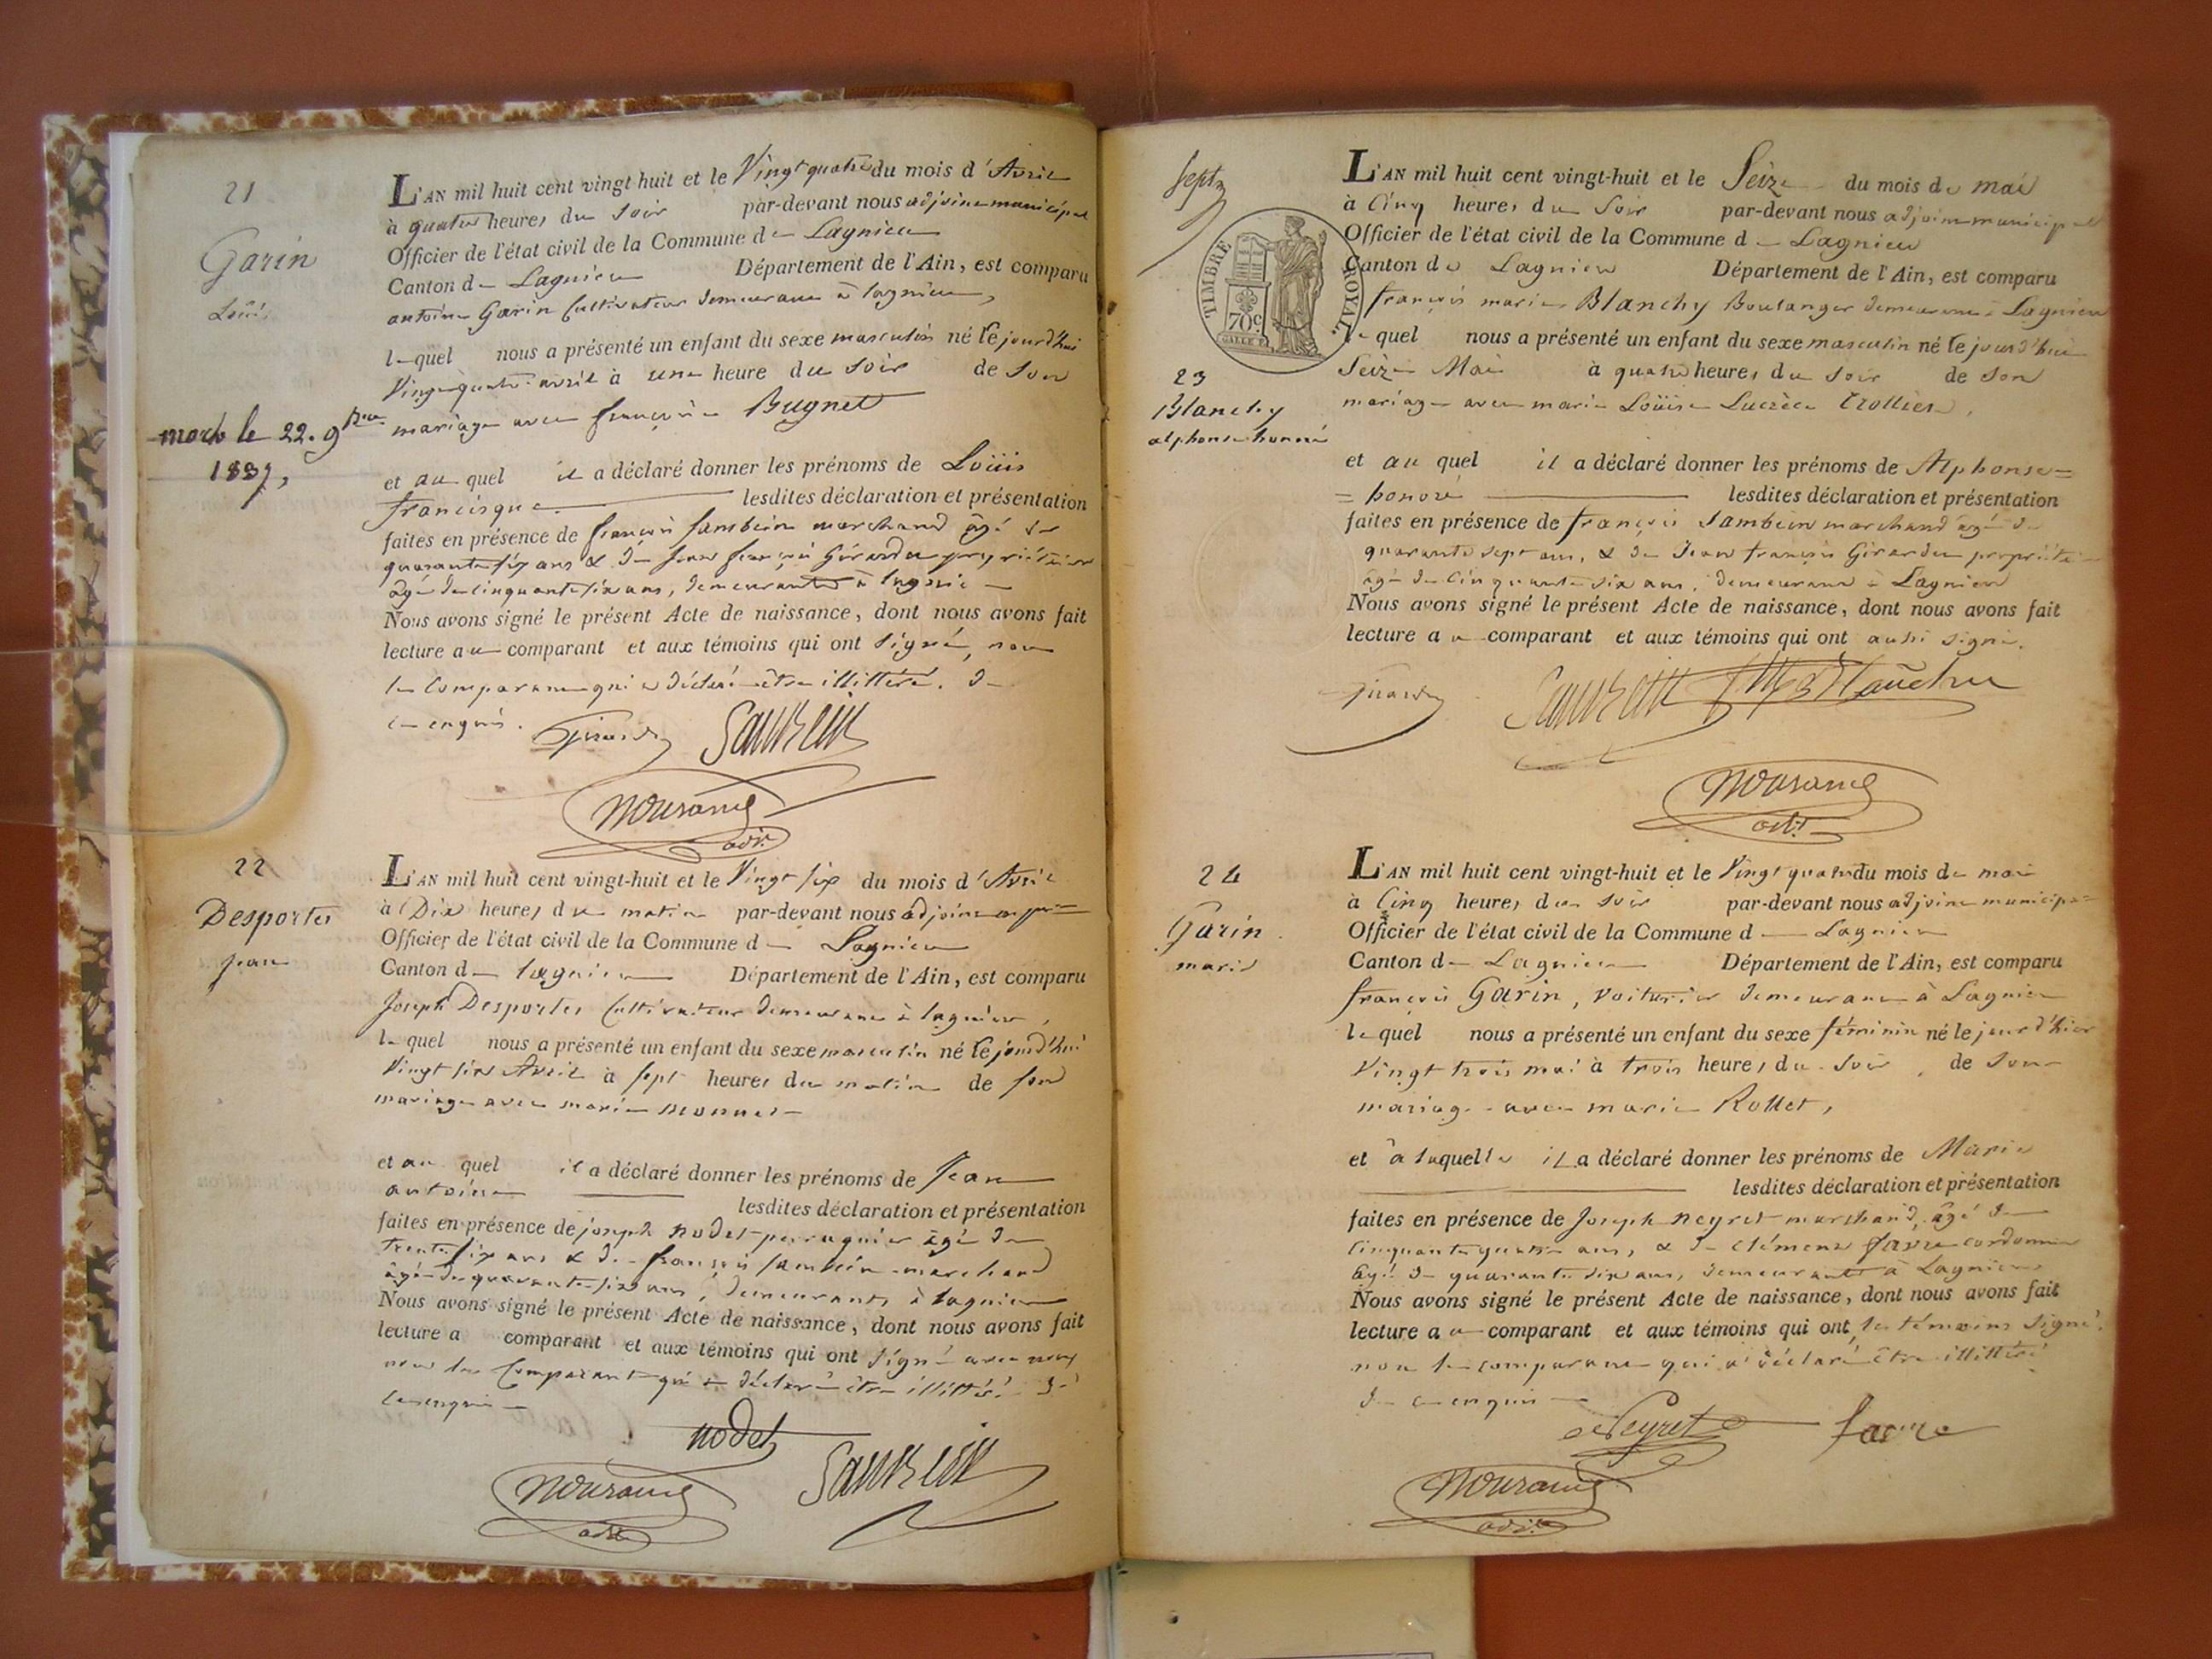 21
Garin
Loüis
mort le 22. 9bre
1837,
L'AN mil huit cent vingt-huit et le Vingt quatre du mois d'Avril
à quatre heures du soir par-devant nous adjoint municipal
Officier de l'état civil de la Commune de Lagnieu
Canton de Lagnieu Département de l'Ain, est comparu
antoine Garin Cultivateur demeurant à lagnieu,
lequel nous a présenté un enfant du sexe masculin né le jourd'hui
Vingt quatre avril à une heure du soir de son
mariage avec françoise Bugnet
et au quel il a déclaré donner les prénoms de Loüis
francisque lesdites déclaration et présentation
faites en présence de françois sambein marchand âgé de
quarante six ans & de jean françois Girardin propriétaire
âgé de cinquante six ans, demeurants à lagnie
Nous avons signé le présent Acte de naissance, dont nous avons fait
lecture au comparant et aux témoins qui ont signé, non
le comparant qui a déclaré être illittéré. de
ce enquis.
22
Desportes
jean
L'AN mil huit cent vingt-huit et le Vingt six du mois d'Avril
à Dix heures du matin par-devant nous adjoint
Officier de l'état civil de la Commune de Lagnieu
Canton de lagnieu Département de l'Ain, est comparu
Joseph Desportes Cultivateur demeurant à lagnieu,
lequel nous a présenté un enfant du sexe masculin né le jourd'hui
Vingt six Avril à sept heures du matin de son
mariage avec marie monnet
et au quel il a déclaré donner les prénoms de Jean
antoine lesdites déclaration et présentation
faites en présence de joseph nodet perruquier âgé de
trente six ans & de françois sambein marchand
âgé de quarante six ans, demeurants à lagnieu
Nous avons signé le présent Acte de naissance, dont nous avons fait
lecture a comparant et aux témoins qui ont signé avec nous
non le Comparant qui a déclaré être illittéré de
ce enquis
nodet
sept
TIMBRE ROYAL.
70c
23
Blanchy
alphonse honoré
L'AN mil huit cent vingt-huit et le Seize du mois de mai
à Cinq heures du soir par-devant nous adjoint municipal
Officier de l'état civil de la Commune de Lagnieu
Canton de Lagnieu Département de l'Ain, est comparu
françois marie Blanchy Boulanger demeurant à Lagnieu
lequel nous a présenté un enfant du sexe masculin né le jourd'hui
Seize Mai à quatre heures du soir de son
mariage avec marie Loüise Lucrèce Trollier,
et au quel il a déclaré donner les prénoms de Alphonse=
=honoré lesdites déclaration et présentation
faites en présence de françois Sambein marchand âgé de
quarante sept ans, & de Jean françois Girardin propriéte
âgé de Cinquante six ans, demeurant à Lagnieu
Nous avons signé le présent Acte de naissance, dont nous avons fait
lecture au comparant et aux témoins qui ont aussi signé.
24
Garin
marie
L'AN mil huit cent vingt-huit et le Vingt quatre du mois de mai
à Cinq heures du soir par-devant nous adjoint municipal
Officier de l'état civil de la Commune de Lagnieu
Canton de Lagnieu Département de l'Ain, est comparu
françois Garin, voiturier demeurant à Lagnieu
lequel nous a présenté un enfant du sexe féminin né le jour d'hier
Vingt trois mai à trois heures du soir, de son
mariage avec marie Rollet,
et à laquelle il a déclaré donner les prénoms de Marie
lesdites déclaration et présentation
faites en présence de Joseph neyret marchand, âgé de
cinquante quatre ans, & de clément favre cordonnier
âgé de quarante six ans, demeurants à Lagnieu
Nous avons signé le présent Acte de naissance, dont nous avons fait
lecture au comparant et aux témoins qui ont, les témoins signé,
non le comparant qui a déclaré être illittéré
de ce enquis
Neyret favre